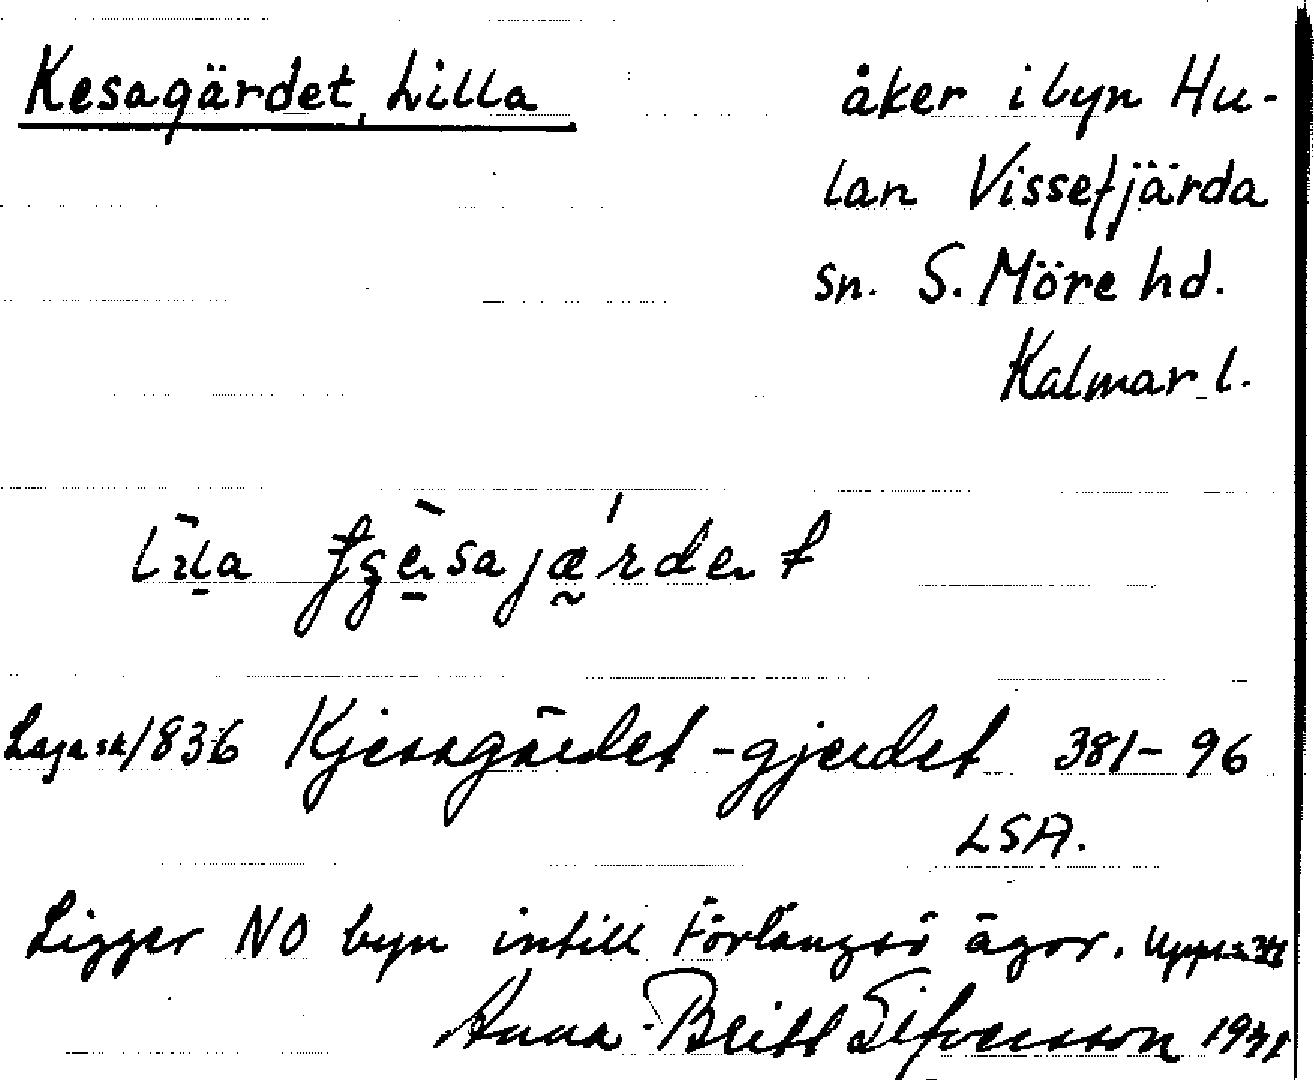 Kesagärdet, Lilla
åker i byn Hu-
lan Vissefjärda
sn. S. Möre hd.
Kalmar l.
Laga sk 1836 Kjesagärdet -gjerdet 381-96
LSA.
Ligger NO byn intill Förlångsö ägor.
Anna-Britt Elfversson